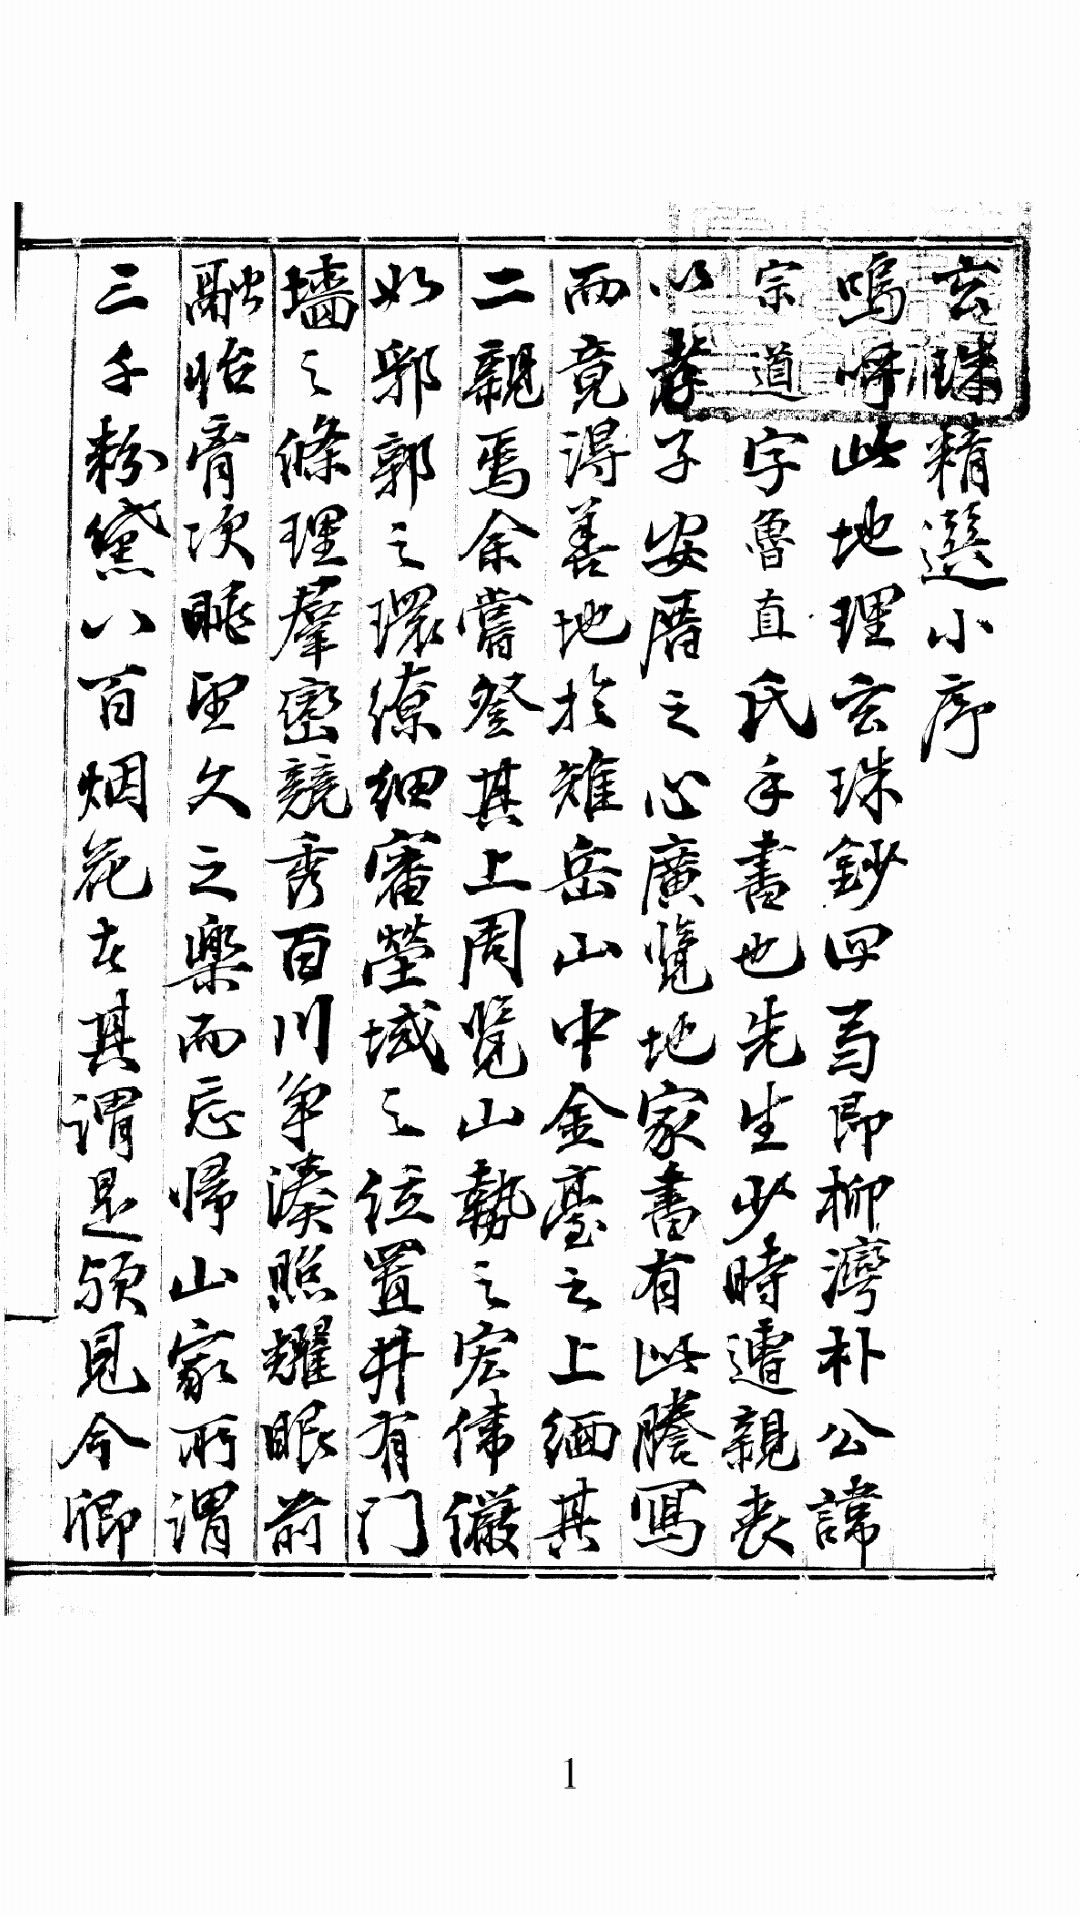 玄珠精選小序
嗚呼此地理玄珠鈔四写即柳灣朴公諱
宗道字魯直氏手書也先生少時遭親喪
以孝子安厝之心廣覽地家書有此謄寫
而竟得善地於雉岳山中金臺之上緬其
二親焉余嘗登其上周覽山勢之宏偉儼
如郛郭之環繚細審塋域之位置井有門
墻之條理羣巒競秀百川争湊照耀眼前
融怡胷次眺望久之樂而忘歸山家所謂
三千粉黛八百烟花在其謂是須見今卿
1